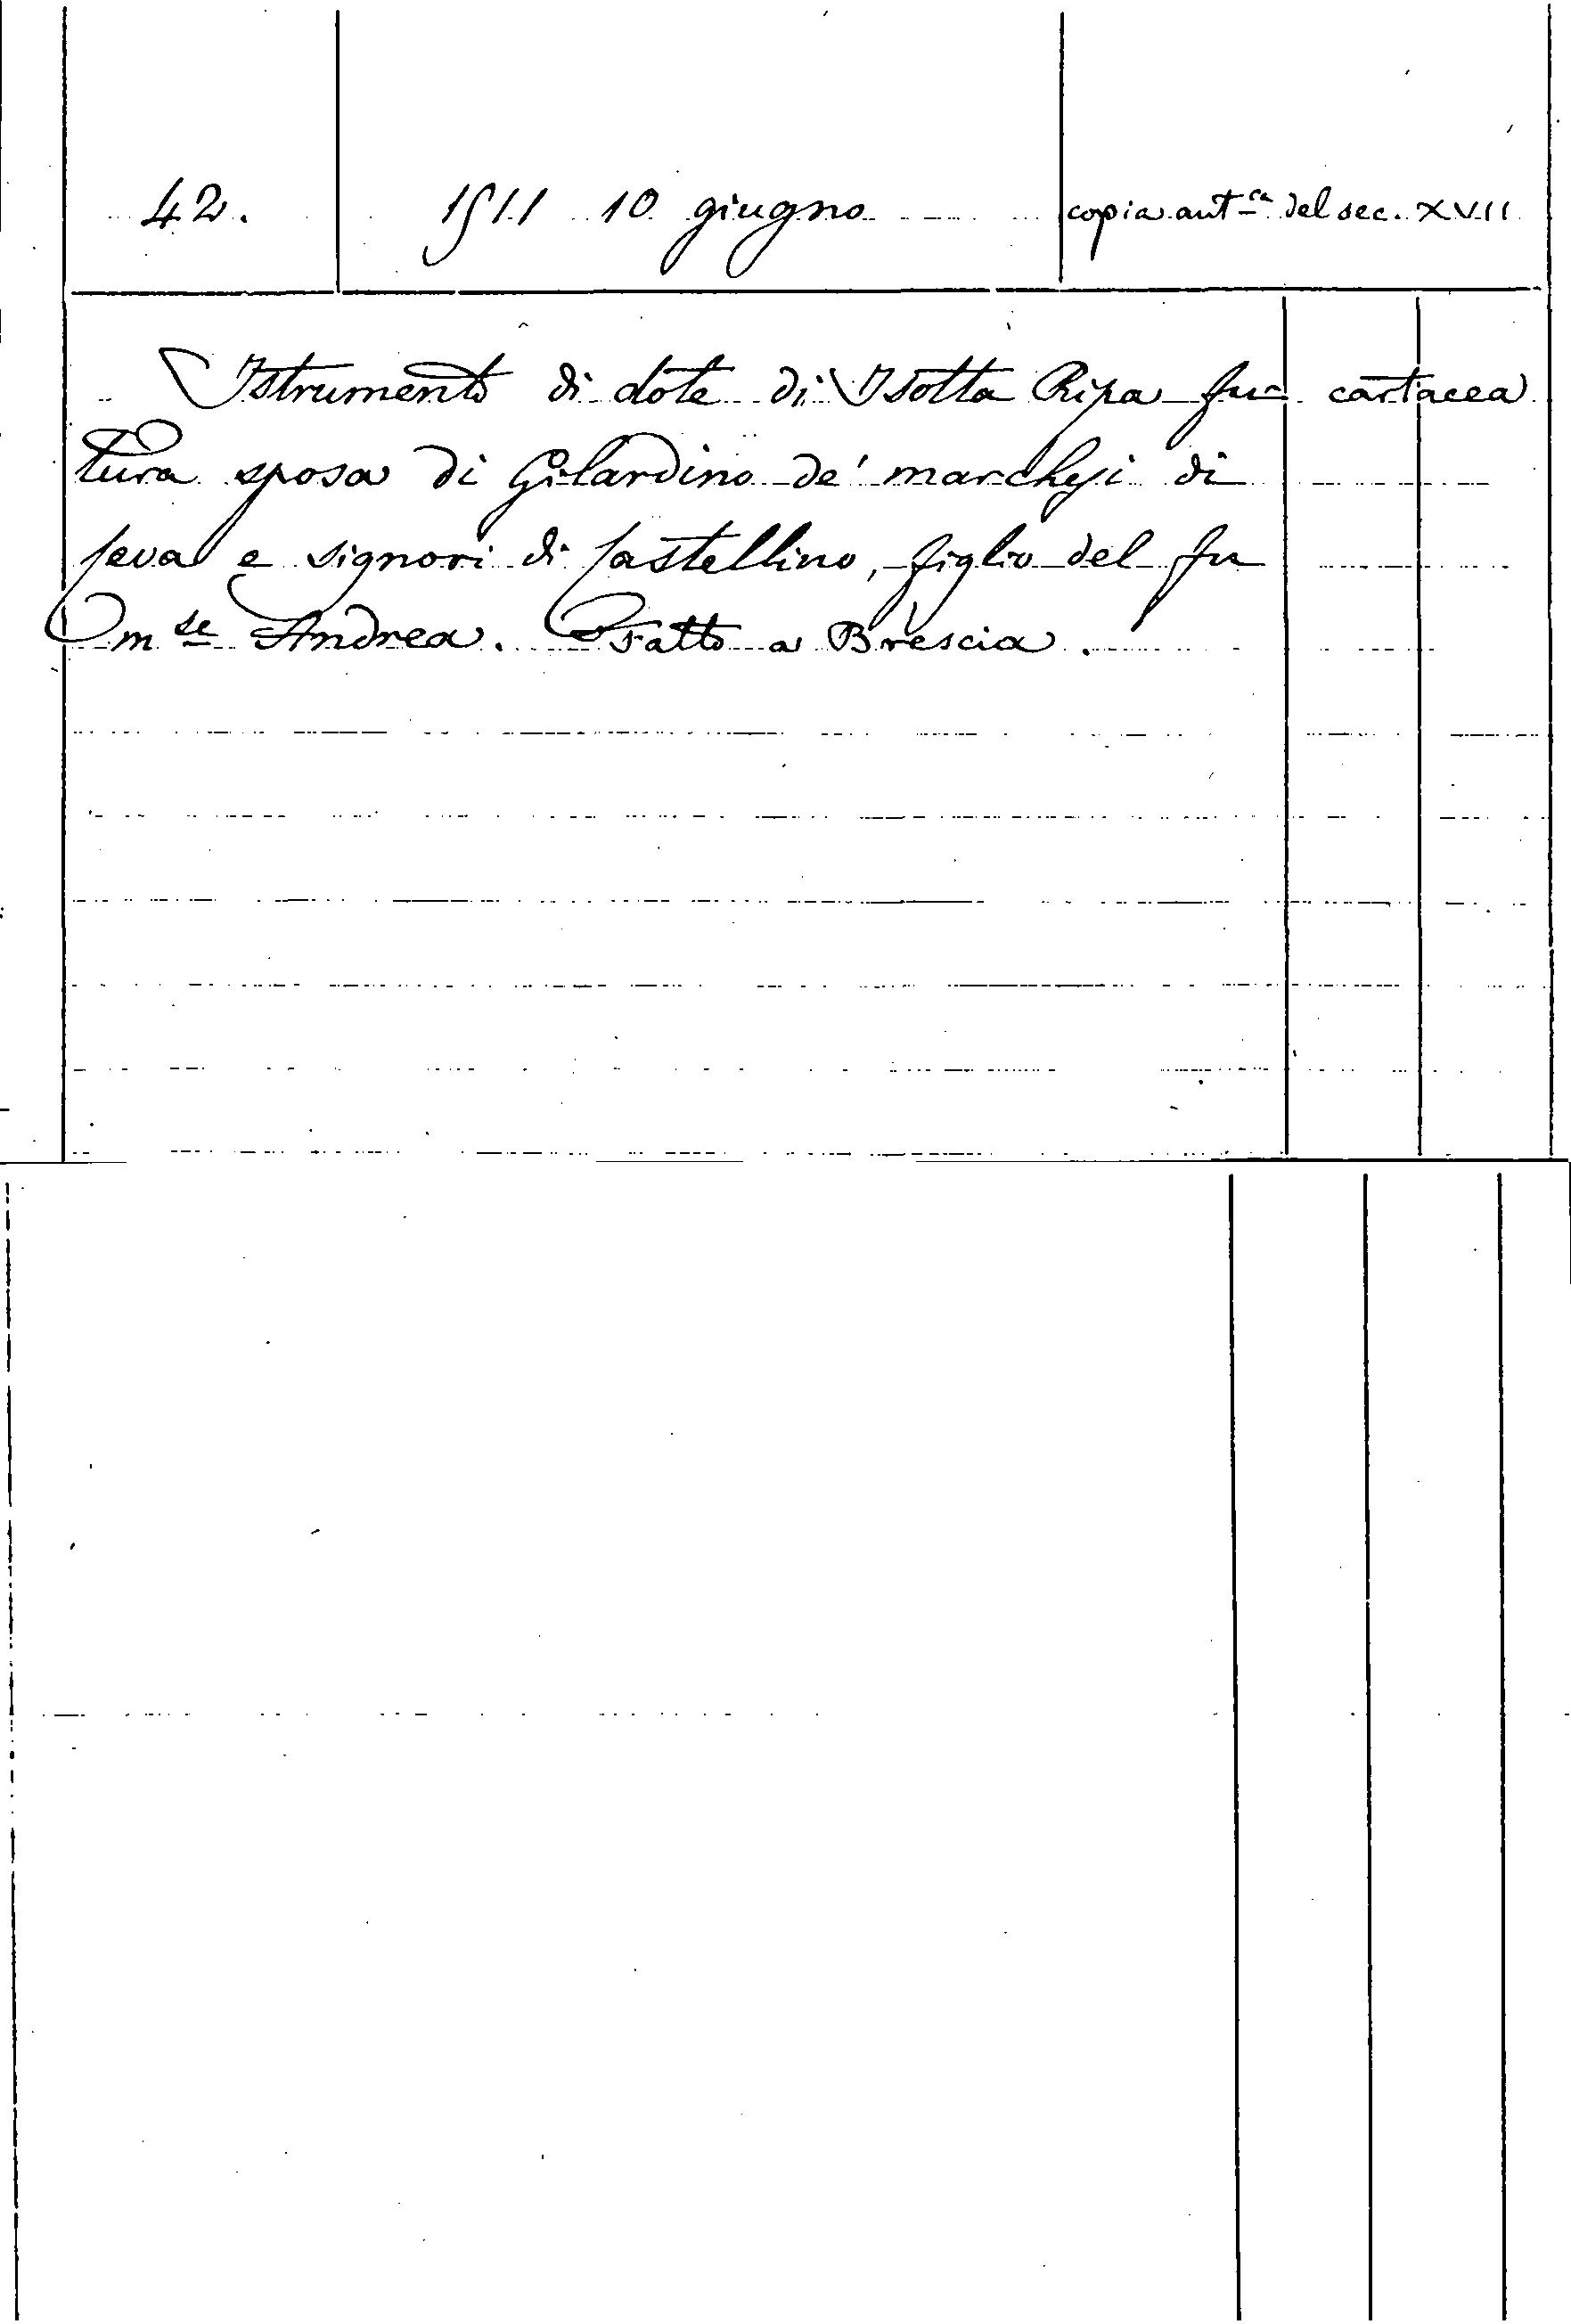 42. 1511 10 giugno copia aut-ca del sec. XVII
Istrumento di dote di Isotta Ripa fu- cartacea
tura sposa di Gilardino de' marchesi di
Ceva e signori di Castellino, figlio del fu
m se Andrea. Fatto a Brescia.